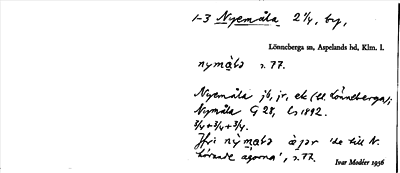 1-3 Nyemåla 2 1/4, by,
Lönneberga sn, Aspelands hd, Klm. l.
nymåla s. 77.
Nyemåla jb, jr, ek (ll. Lönneberga);
Nymåla G 28, Ls 1892.
3/4+3/4+3/4.
nỳmala àjər 'de till N.
hörande ägorna', s. 77.
Ivar Modéer 1936